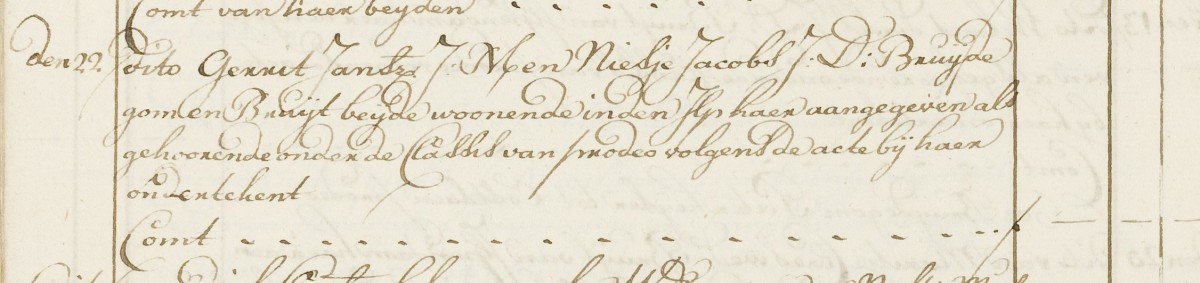 Comt van haer beyden
den 22. dito Gerrit Jansz J: M en Niesje Jacobs J: D: Bruyde
gom en Bruijt beyde woonende in den Ilp haer aangegeven als
gehoorende onder de Classis van prodeo volgens de acte bij haer
ondertekent
Comt